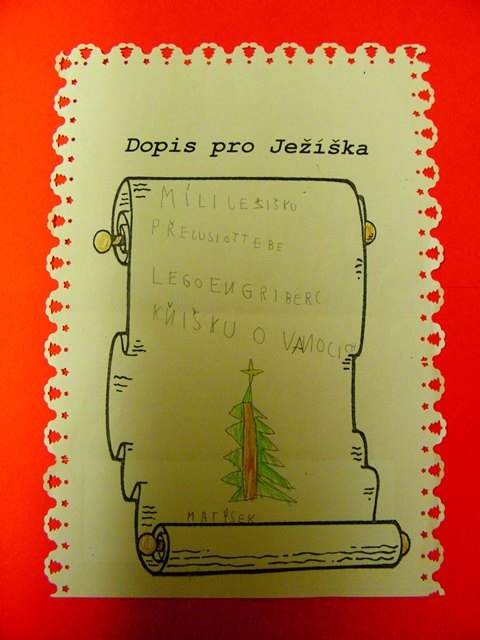 Dopis pro Ježíška
MÍLI LEŽIŠKU
PŘELUSIOTTEBE
LEGOENGRIBERC
KŇIŠKU O VANOCICH
MATÝSEK